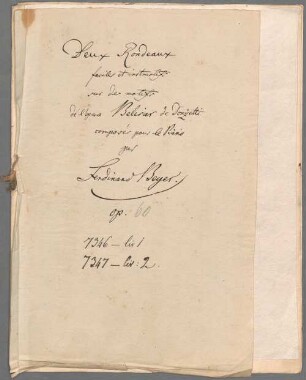 Deux Rondeaux
faciles et instructifs
sur des motifs
de l'opera Belisar de Donizetti
composés pour le Piano
par
Ferdinand Beyer.
op: 60
7346 – liv 1
7347 – liv: 2.